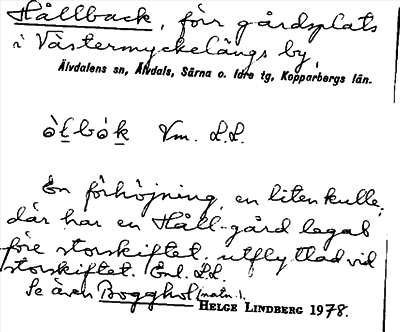 Hållback, förr gårdsplats
i Västermyckelängs by,
Älvdalens sn, Älvdals, Särna o. Idre tg, Kopparbergs län.
Vm. L.L.
En förhöjning, en liten kulle,
där har en Håll-gård legat
före storskiftet, utflyttad vid
storskiftet. Enl. L.L.
Se även Bogghol (natn.).
HELGE LINDBERG 1978.